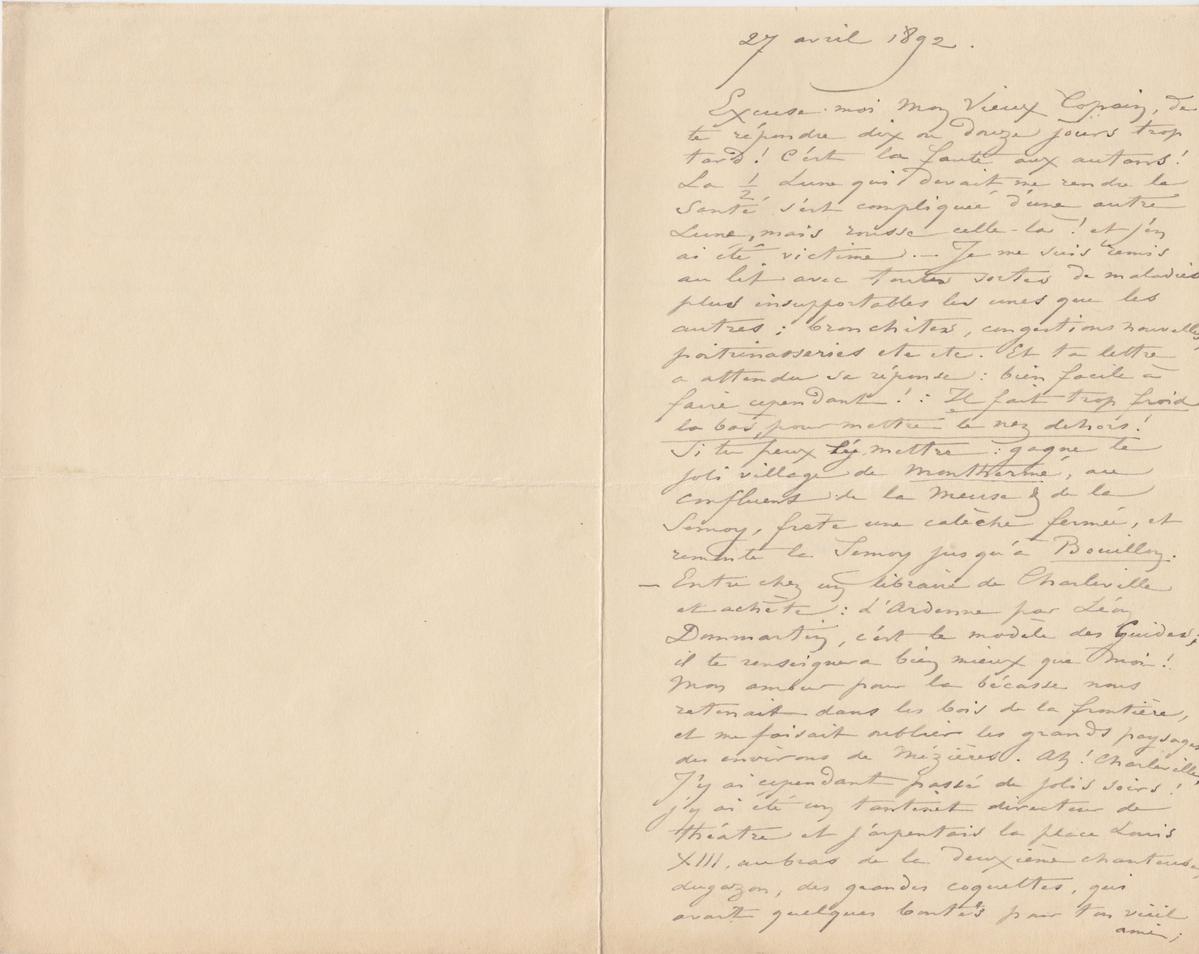 27 avril 1892.
Excuse-moi Mon Vieux Copain, de
te répondre dix ou douze jours trop
tard! C'est la faute aux autans!
La 1/2 Lune qui devait me rendre la
Santé, s'est compliquée d'une autre
Lune, mais rousse celle-là! et j'en
ai été victime. — Je me suis remis
au lit avec toutes sortes de maladies
plus insupportables les unes que les
autres; bronchites, congestions nouvelles,
poitrinasseries etc etc. Et ta lettre
a attendu sa réponse: bien facile à
faire cependant!: Il fait trop froid
là bas, pour mettre le nez dehors!
Si tu peux l'y mettre: gagne le
joli village de Monthermé, au
confluent de la Meuse & de la
Semoy, frète une calèche fermée, et
remonte la Semoy jusqu'à Bouillon.
— Entre chez un libraire de Charleville
et achète: L'Ardenne par Léon
Dommartin, c'est le modèle des Guides,
il te renseignera bien mieux que moi!
Mon amour pour la bécasse nous
retenait dans les bois de la frontière,
et me faisait oublier les grands paysages
des environs de Mézières. Ah! Charleville,
J'y ai cependant passé de jolis soirs!
j'y ai été un tantinet directeur de
théâtre et j'arpentais la place Louis
XIII. au bras de la deuxième chanteuse,
dugazon, des grandes coquettes, qui
avait quelques bontés pour ton vieil
ami;